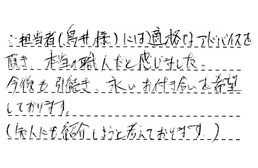 ご担当者(鳥井様)には適格なアドバイスを
頂き、本当の職人だと感じました。
今後も引続き、永いお付き合いを希望
しております。
(知人にも紹介しようと考えております。)